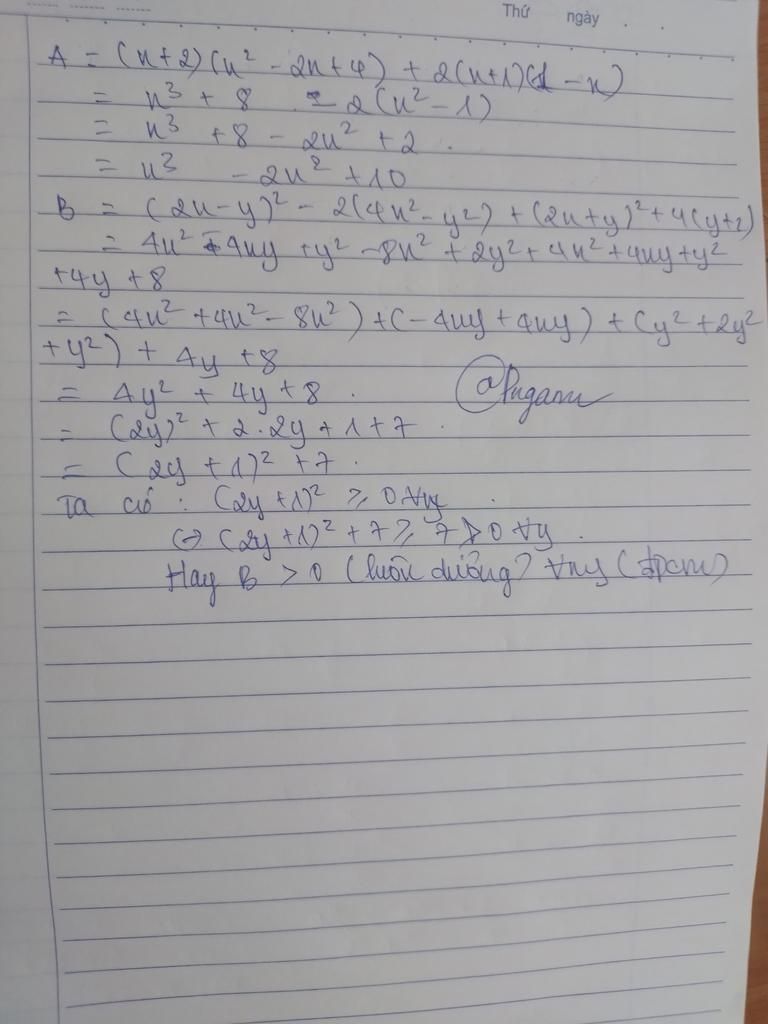 Thứ ngày . .
A = (x+2)(x² - 2x+4) + 2(x+1)(1 - x)
= x³ + 8 - 2(x² - 1)
= x³ + 8 - 2x² + 2 .
= x³ - 2x² + 10
B = (2x-y)² - 2(4x²-y²) + (2x+y)² + 4(y+2)
= 4x² - 4xy + y² - 8x² + 2y² + 4x² + 4xy + y²
+4y + 8
= (4x² + 4x² - 8x²) + (-4xy + 4xy) + (y² + 2y²
+ y²) + 4y + 8
= 4y² + 4y + 8 .
= (2y)² + 2.2y + 1 + 7 .
= (2y + 1)² + 7 .
Ta có : (2y + 1)² ≥ 0 ∀y .
(=) (2y + 1)² + 7 ≥ 7 > 0 ∀y .
Hay B > 0 (luôn dương) ∀xy (đpcm)